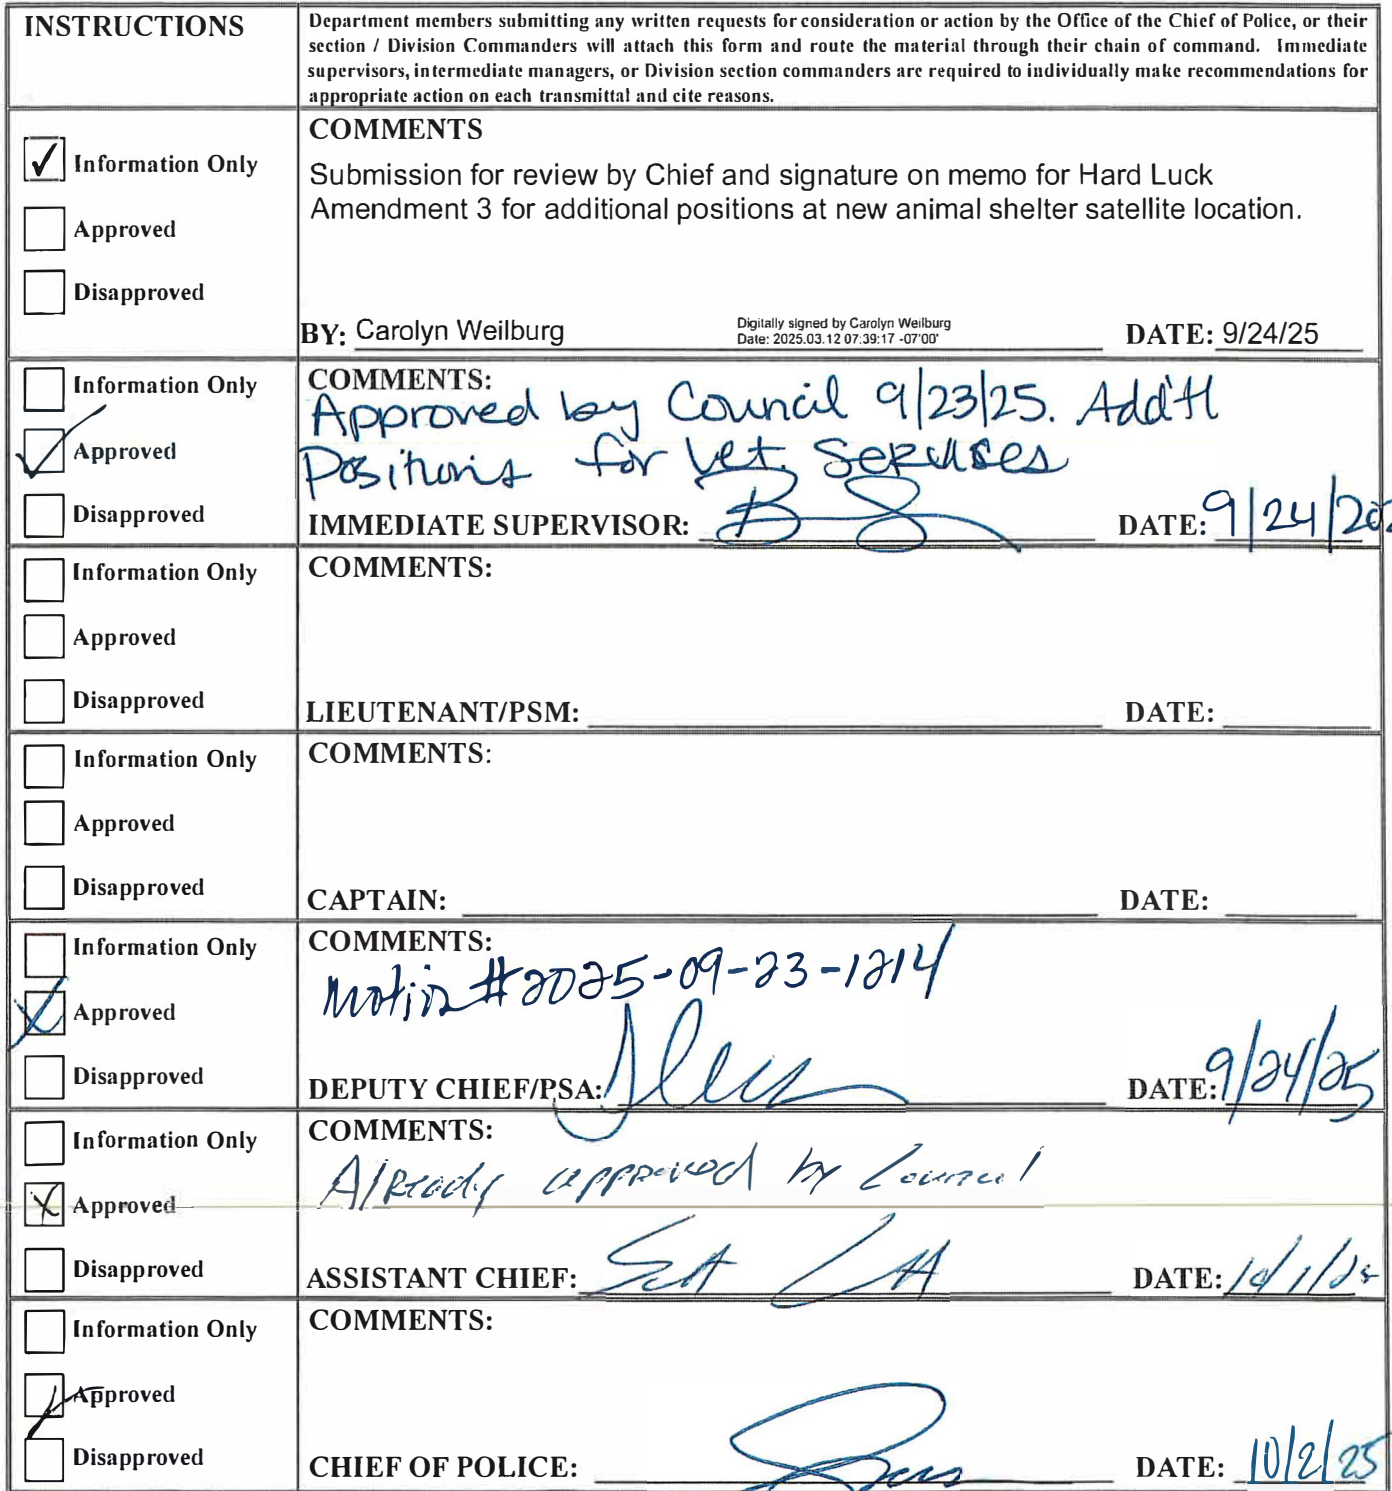 INSTRUCTIONS
Department members submitting any written requests for consideration or action by the Office of the Chief of Police, or their
section / Division Commanders will attach this form and route the material through their chain of command. Immediate
supervisors, intermediate managers, or Division section commanders are required to individually make recommendations for
appropriate action on each transmittal and cite reasons.
✓ Information Only
Approved
Disapproved
COMMENTS
Submission for review by Chief and signature on memo for Hard Luck
Amendment 3 for additional positions at new animal shelter satellite location.
BY: Carolyn Weilburg
Digitally signed by Carolyn Weilburg
Date: 2025.03.12 07:39:17 -07'00'
DATE: 9/24/25
Information Only
✓ Approved
Disapproved
COMMENTS:
Approved by Council 9/23/25. Add'tl
Positions for Vet. Services
IMMEDIATE SUPERVISOR:
DATE: 9/24/202
Information Only
Approved
Disapproved
COMMENTS:
LIEUTENANT/PSM:
DATE:
Information Only
Approved
Disapproved
COMMENTS:
CAPTAIN:
DATE:
Information Only
X Approved
Disapproved
COMMENTS:
Motion #2025-09-23-1214
DEPUTY CHIEF/PSA:
DATE: 9/24/25
Information Only
X Approved
Disapproved
COMMENTS:
Already approved by Council
ASSISTANT CHIEF:
DATE: 10/1/25
Information Only
Approved
Disapproved
COMMENTS:
CHIEF OF POLICE:
DATE: 10/2/25